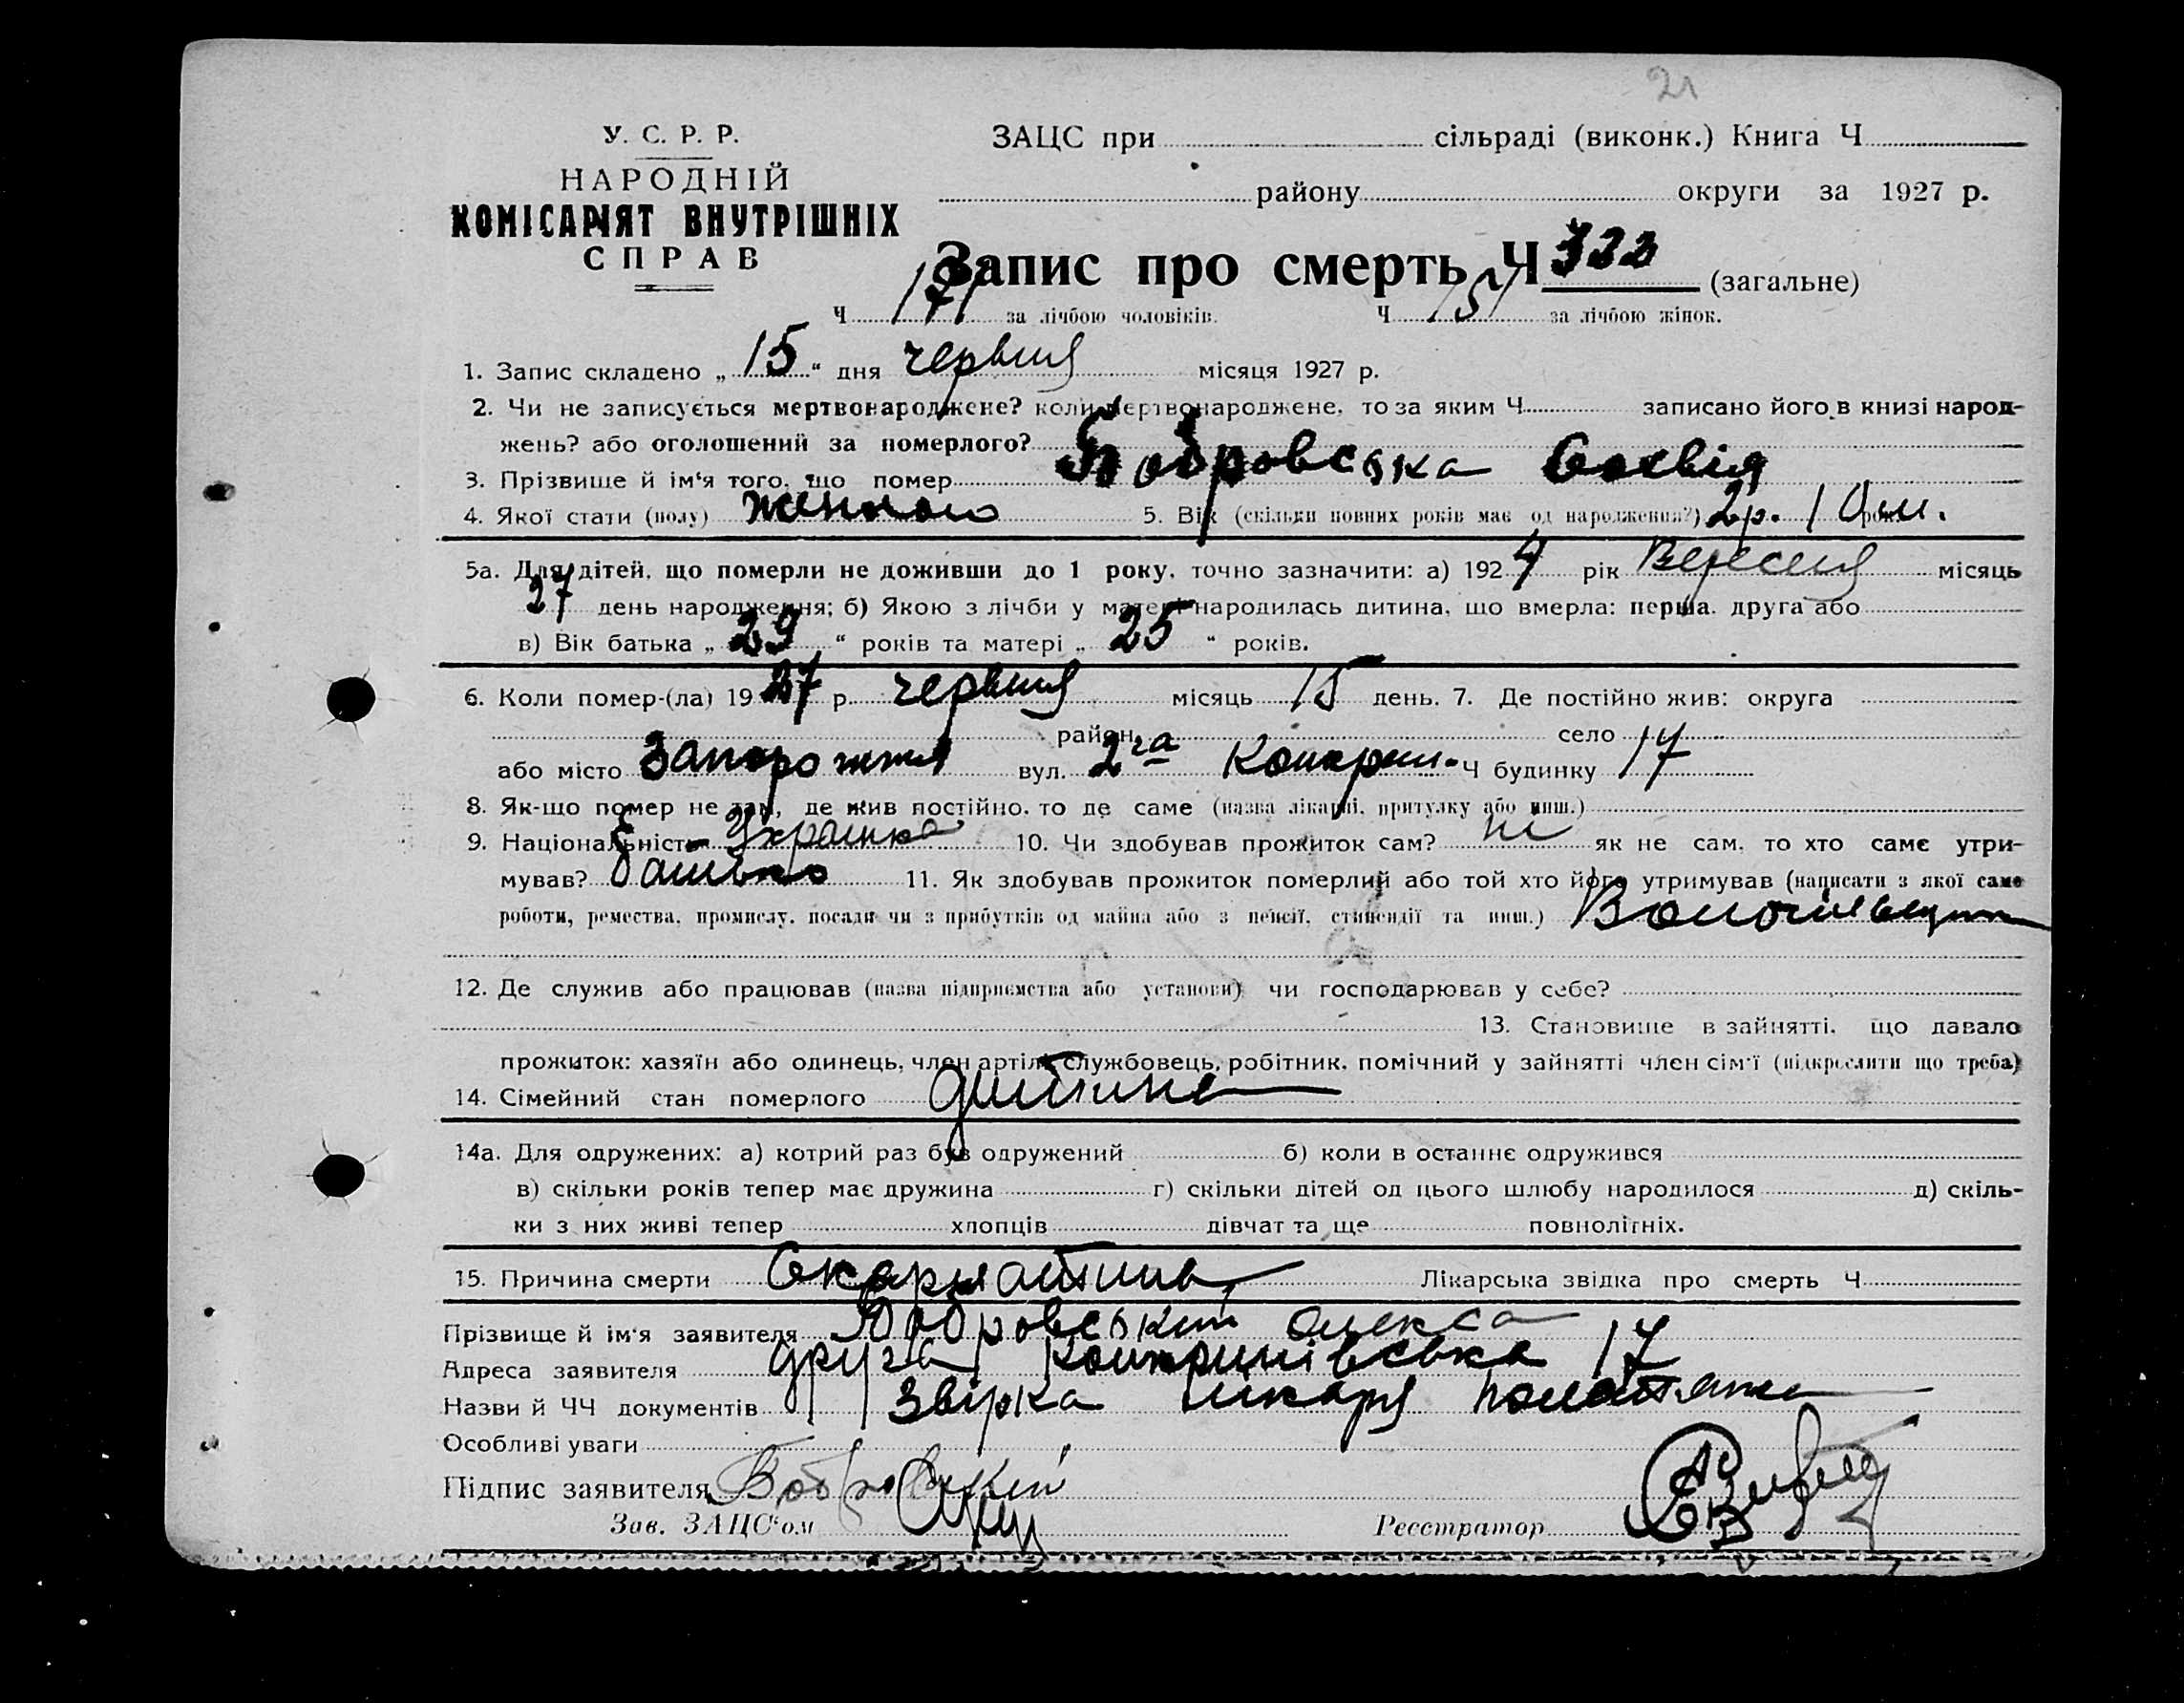 21
У. С. Р. Р.
НАРОДНІЙ
КОМІСАРІЯТ ВНУТРІШНІХ
СПРАВ
ЗАЦС при сільраді (виконк.) Книга Ч
району округи за 1927 р.
Запис про смерть Ч 322 (загальне)
Ч 171 за лічбою чоловіків. Ч 151 за лічбою жінок.
1. Запис складено „ 15 “ дня червня місяця 1927 р.
2. Чи не записується мертвонароджене? коли мертвонароджене, то за яким Ч записано його в книзі народ-
жень? або оголошений за померлого?
3. Прізвище й ім‘я того, що помер Бобровська
4. Якої стати (полу) женного 5. Вік (скільки повних років має од народження?) 2 р. 10 м.
5а. Для дітей, що померли не доживши до 1 року, точно зазначити: а) 1924 рік Вересня місяць
27 день народження; б) Якою з лічби у матері народилась дитина, що вмерла: перша, друга або
в) Вік батька „ 29 “ років та матері „ 25 “ років.
6. Коли помер-(ла) 1927 р. червня місяць 15 день. 7. Де постійно жив: округа
район село
або місто Запорожжя вул. 2га Ч будинку 17
8. Як-що помер не там, де жив постійно, то де саме (назва лікарні, притулку або инш.)
9. Національність Українка 10. Чи здобував прожиток сам? ні як не сам, то хто саме утри-
мував? батько 11. Як здобував прожиток померлий або той хто його утримував (написати з якої саме
роботи, ремества, промислу, посади чи з прибутків од майна або з пенсії, стипендії та инш.)
12. Де служив або працював (назва підприємства або установи) чи господарював у себе?
13. Становище в зайнятті, що давало
прожиток: хазяїн або одинець, член артілі, службовець, робітник, помічний у зайнятті член сім‘ї (підкреслити що треба)
14. Сімейний стан померлого дитина
14а. Для одружених: а) котрий раз був одружений б) коли в останнє одружився
в) скільки років тепер має дружина г) скільки дітей од цього шлюбу народилося д) скіль-
ки з них живі тепер хлопців дівчат та ще повнолітніх.
15. Причина смерти Скарлатина Лікарська звідка про смерть Ч
Прізвище й ім‘я заявителя Бобровський Олекса
Адреса заявителя друга 17
Назви й ЧЧ документів лікаря
Особливі уваги
Підпис заявителя Бобровский
Зав. ЗАЦС‘ом Реєстратор